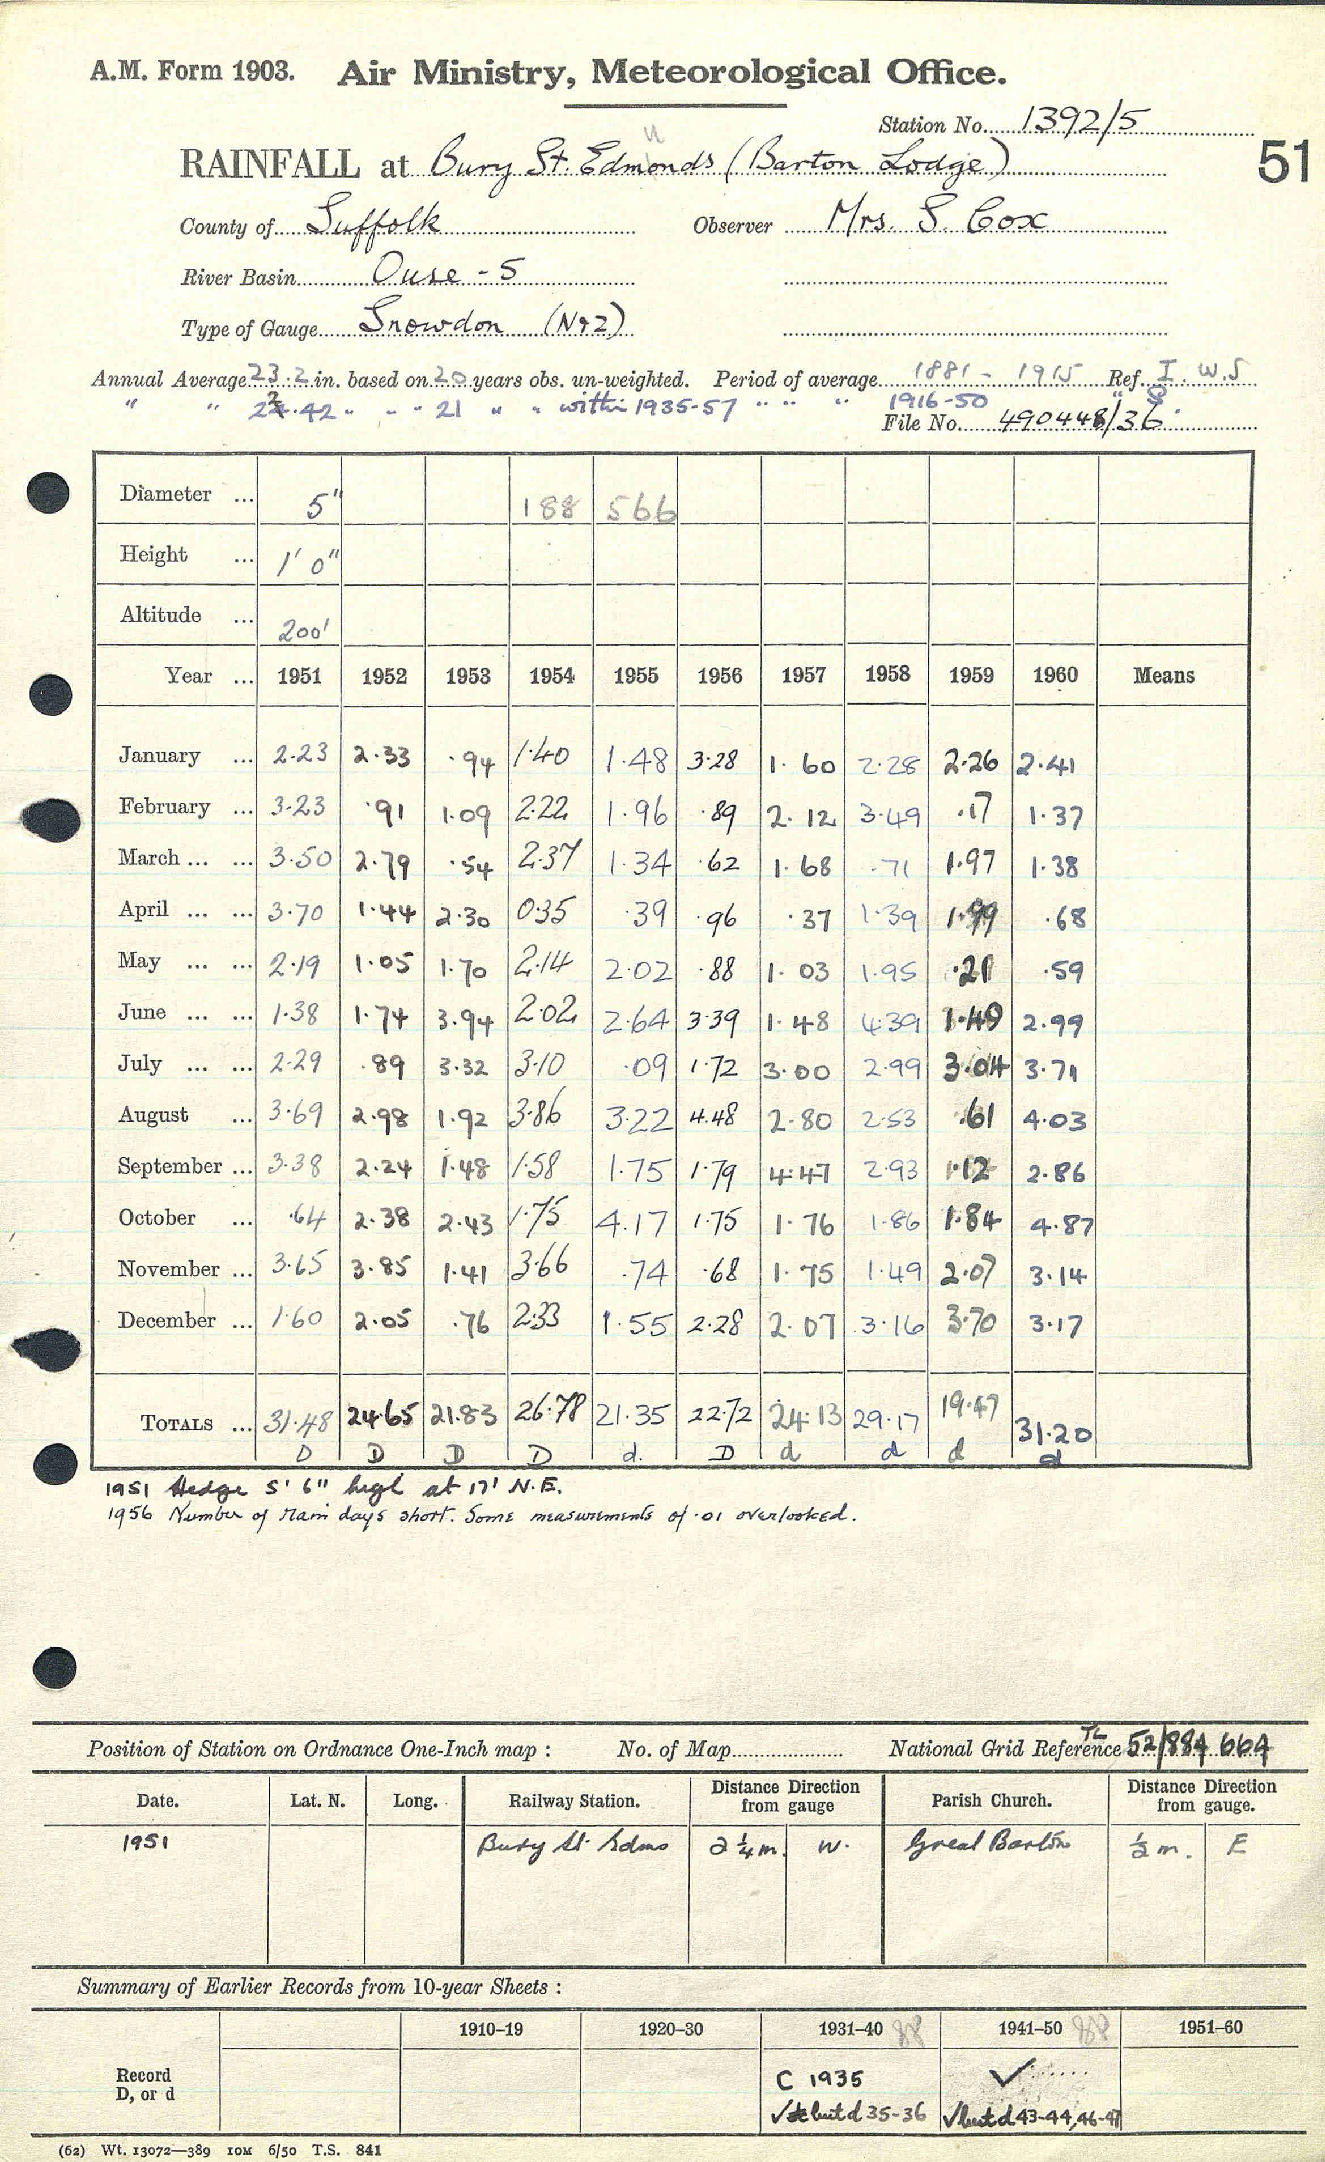 A.M. Form 1903. Air Ministry, Meteorological Office.
Station No. 1392/5
51
RAINFALL at Bury St. Edmunds (Barton Lodge)
County of Suffolk Observer Mrs. S. Cox
River Basin Ouse - 5
Type of Gauge Snowdon (No2)
Annual Average 23.2 in. based on 20 years obs. un-weighted. Period of average 1881 - 1915 Ref. I. W.S
" " 23.42 " " " 21 " " within 1935-57 " " " 1916-50 "
File No. 490448/36
Diameter ... 5" 188 566
Height ... 1' 0"
Altitude ... 200'
Year ... 1951 1952 1953 1954 1955 1956 1957 1958 1959 1960 Means
January ... 2.23 2.33 .94 1.40 1.48 3.28 1.60 2.28 2.26 2.41
February ... 3.23 .91 1.09 2.22 1.96 .89 2.12 3.49 .17 1.37
March ... ... 3.50 2.79 .54 2.37 1.34 .62 1.68 .71 1.97 1.38
April ... ... 3.70 1.44 2.30 0.35 .39 .96 .37 1.39 1.99 .68
May ... ... 2.19 1.05 1.70 2.14 2.02 .88 1.03 1.95 .21 .59
June ... ... 1.38 1.74 3.94 2.02 2.64 3.39 1.48 4.39 1.49 2.99
July ... ... 2.29 .89 3.32 3.10 .09 1.72 3.00 2.99 3.04 3.71
August ... 3.69 2.98 1.92 3.86 3.22 4.48 2.80 2.53 .61 4.03
September ... 3.38 2.24 1.48 1.58 1.75 1.79 4.47 2.93 1.12 2.86
October ... .64 2.38 2.43 1.75 4.17 1.75 1.76 1.86 1.84 4.87
November ... 3.65 3.85 1.41 3.66 .74 .68 1.75 1.49 2.07 3.14
December ... 1.60 2.05 .76 2.33 1.55 2.28 2.07 3.16 3.70 3.17
TOTALS ... 31.48 24.65 21.83 26.78 21.35 22.72 24.13 29.17 19.47 31.20
D D D D d. D d d d d
1951 Hedge 5' 6" high at 17' N.E.
1956 Number of rain days short. Some measurements of .01 overlooked.
Position of Station on Ordnance One-Inch map : No. of Map National Grid Reference TL 52/884 664
Date. Lat. N. Long. Railway Station. Distance Direction from gauge Parish Church. Distance Direction from gauge.
1951 Bury St Edms 2 1/4 m. W. Great Barton 1/2 m. E
Summary of Earlier Records from 10-year Sheets :
1910-19 1920-30 1931-40 1941-50 1951-60
Record
D, or d
C 1935 ✓
but d 35-36 ✓ but d 43-44, 46-47
(62) Wt. 13072—389 10M 6/50 T.S. 841